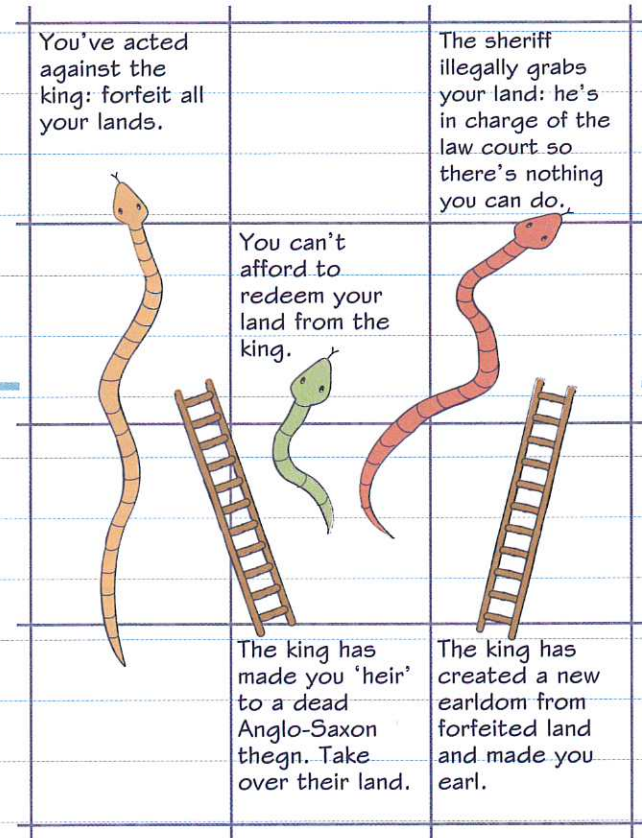 You've acted
against the
king: forfeit all
your lands.
The sheriff
illegally grabs
your land: he's
in charge of the
law court so
there's nothing
you can do.
You can't
afford to
redeem your
land from the
king.
The king has
made you 'heir'
to a dead
Anglo-Saxon
thegn. Take
over their land.
The king has
created a new
earldom from
forfeited land
and made you
earl.